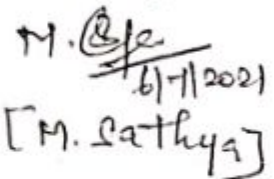 M.
6/7/2021
[M. Sathya]